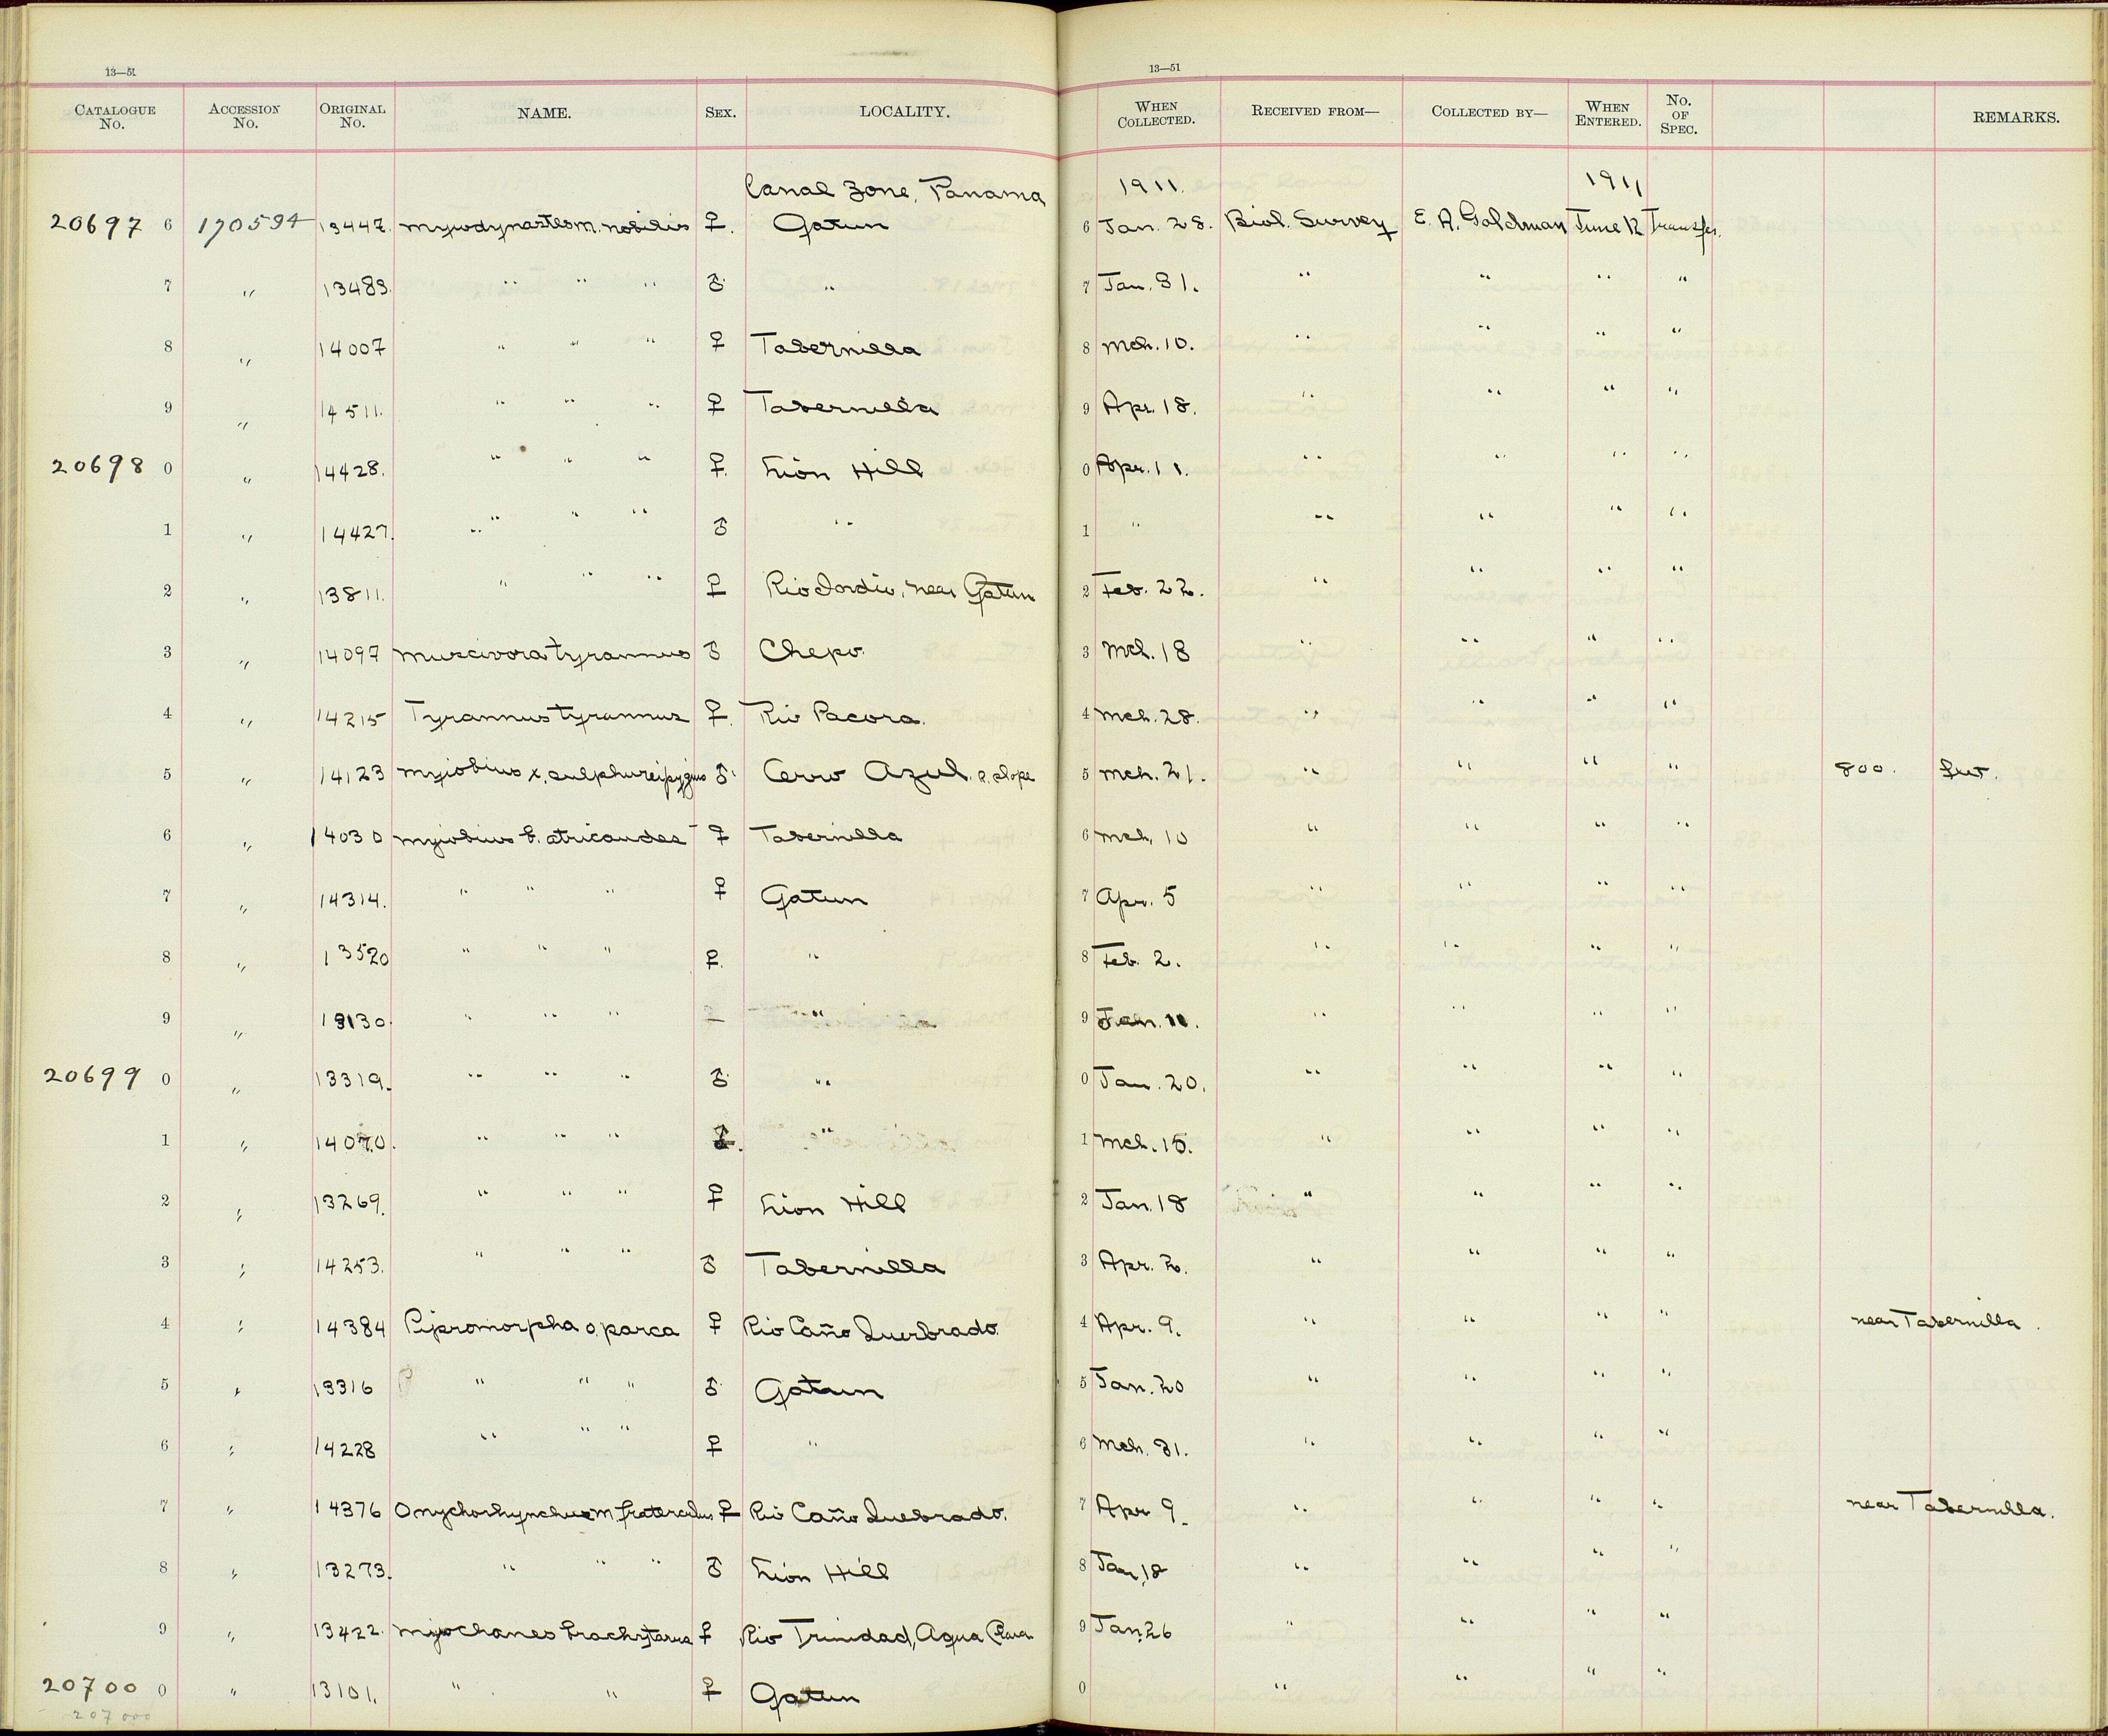 13—51 13—51
CATALOGUE No. ACCESSION No. ORIGINAL No. NAME. SEX. LOCALITY. WHEN COLLECTED. RECEIVED FROM— COLLECTED BY— WHEN ENTERED. No. OF SPEC. REMARKS.
Canal Zone, Panama 1911. 1911
20697 6 170594 13447. Myiodynastes m. nobilis ♀. Gatun 6 Jan. 28. Biol. Survey E. A. Goldman June 12 Transfer.
7 " 13483. " " " ♂. " 7 Jan. 31. " " " "
8 " 14007 " " " ♀ Tabernilla 8 Mch. 10. " " " "
9 " 14511. " " " ♀ Tabernilla 9 Apr. 18. " " " "
20698 0 " 14428. " " " ♀. Lion Hill 0 Apr. 11. " " " "
1 " 14427. " " " ♂ " 1 " " " " "
2 " 13811. " " " ♀ Rio Indio, near Gatun 2 Feb. 22. " " " "
3 " 14097 Muscivora tyrannus ♂ Chepo. 3 Mch. 18 " " " "
4 " 14215 Tyrannus tyrannus ♀. Rio Pacora. 4 Mch. 28. " " " "
5 " 14123 Myiobius x. sulphureipygius ♂. Cerro Azul. s. slope 5 Mch. 21. " " " " 800. feet.
6 " 14030 Myiobius b. atricaudus ♀ Tabernilla 6 Mch. 10 " " " "
7 " 14314. " " " ♀ Gatun 7 Apr. 5 " " " "
8 " 13520 " " " ♀. " 8 Feb. 2. " " " "
9 " 13130. " " " " 9 Jan. 11. " " " "
20699 0 " 13319. " " " ♂. " 0 Jan. 20. " " " "
1 " 14070. " " " ♂. " 1 Mch. 15. " " " "
2 " 13269. " " " ♀ Lion Hill 2 Jan. 18 " " " "
3 " 14253. " " " ♂ Tabernilla 3 Apr. 2. " " " "
4 " 14384 Pipromorpha o. parca ♀ Rio Caño Quebrado. 4 Apr. 9. " " " " near Tabernilla.
5 " 13316 " " " ♂. Gatun 5 Jan. 20 " " " "
6 " 14228 " " " ♀ " 6 Mch. 31. " " " "
7 " 14376 Onychorhynchus m. fraterculus ♀ Rio Caño Quebrado. 7 Apr 9. " " " " near Tabernilla.
8 " 13273. " " " ♂ Lion Hill 8 Jan. 18 " " " "
9 " 13422. Myiochanes brachytarsus ♀ Rio Trinidad, Agua Clara 9 Jan. 26 " " " "
20700 0 " 13101. " " ♀ Gatun 0 " " " "
207000